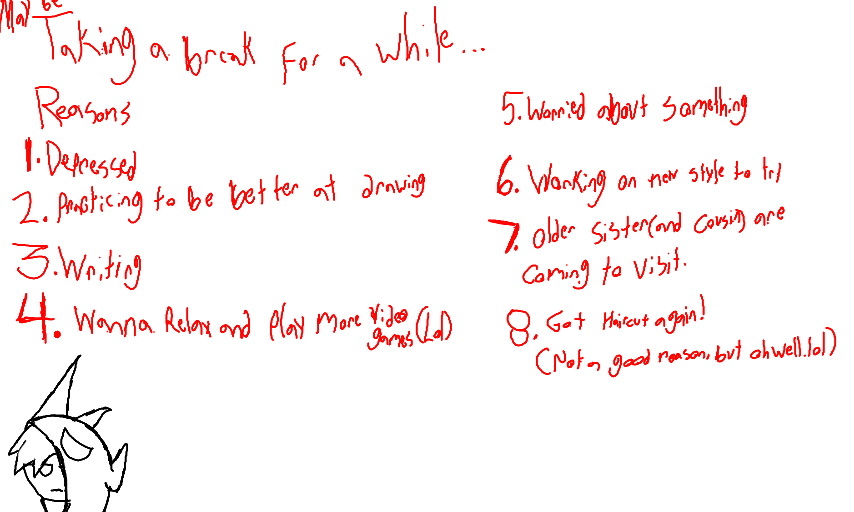 May be
Taking a break for a while...
Reasons
1. Depressed
2. Practicing to be better at drawing
3. Writing
4. Wanna Relax and play more video games (Lol)
5. Worried about something
6. Working on new style to try
7. Older sister (and cousin) are
coming to visit.
8. Got Haircut again!
(Not a good reason, but oh well. lol)